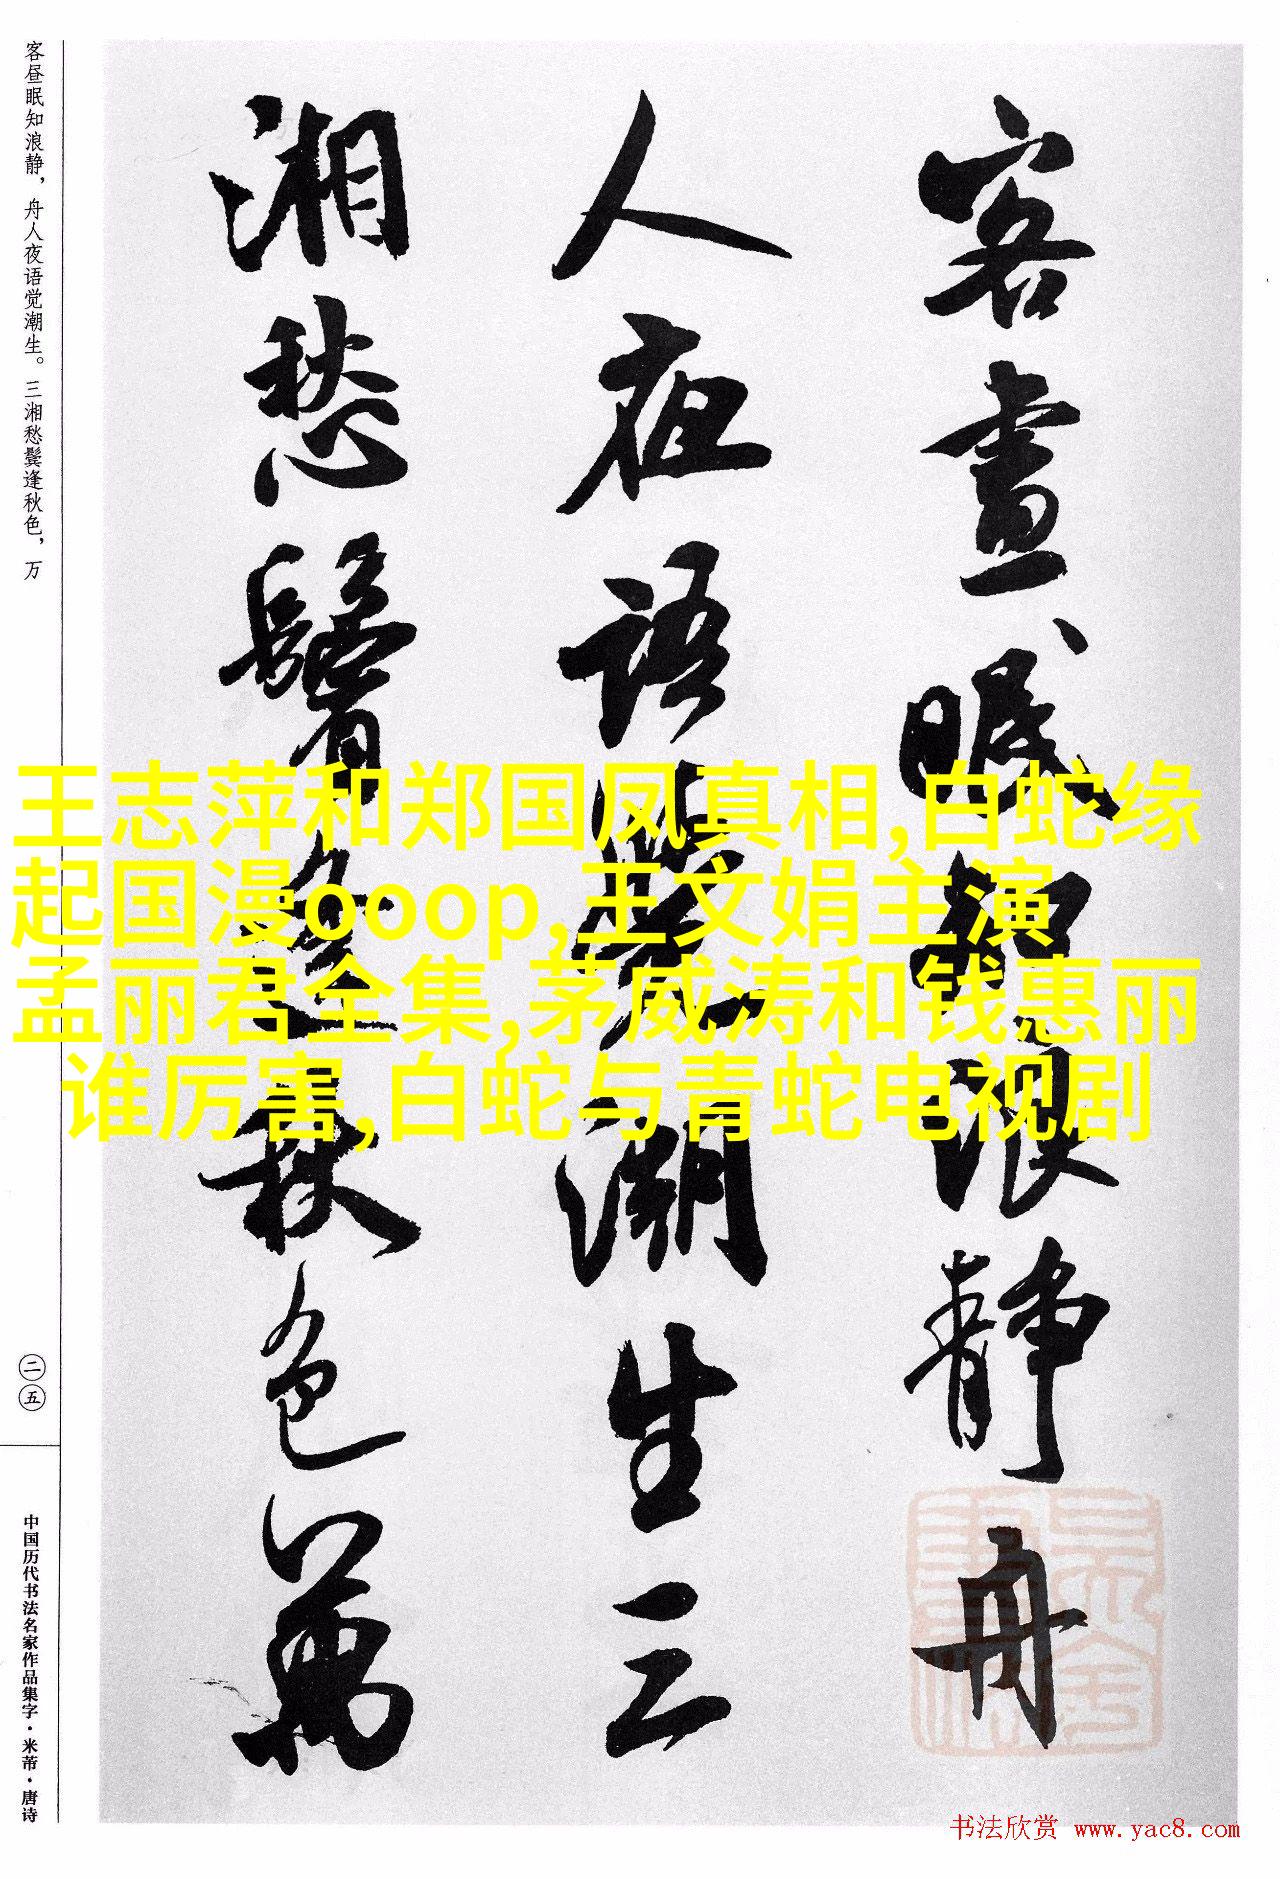 客昼眠知浪静，舟人夜语觉潮生。三湘愁鬓逢秋色，万
客晝眠知浪靜舟
人夜語覺潮生三
湘愁鬢逢秋色萬
王志萍和郑国凤真相,白蛇缘
起国漫ooop,王文娟主演
孟丽君全集,茅威涛和钱惠丽
谁厉害,白蛇与青蛇电视剧
二五
中国历代书法名家作品集字·米芾·唐诗
书法欣赏 www.yac8.com